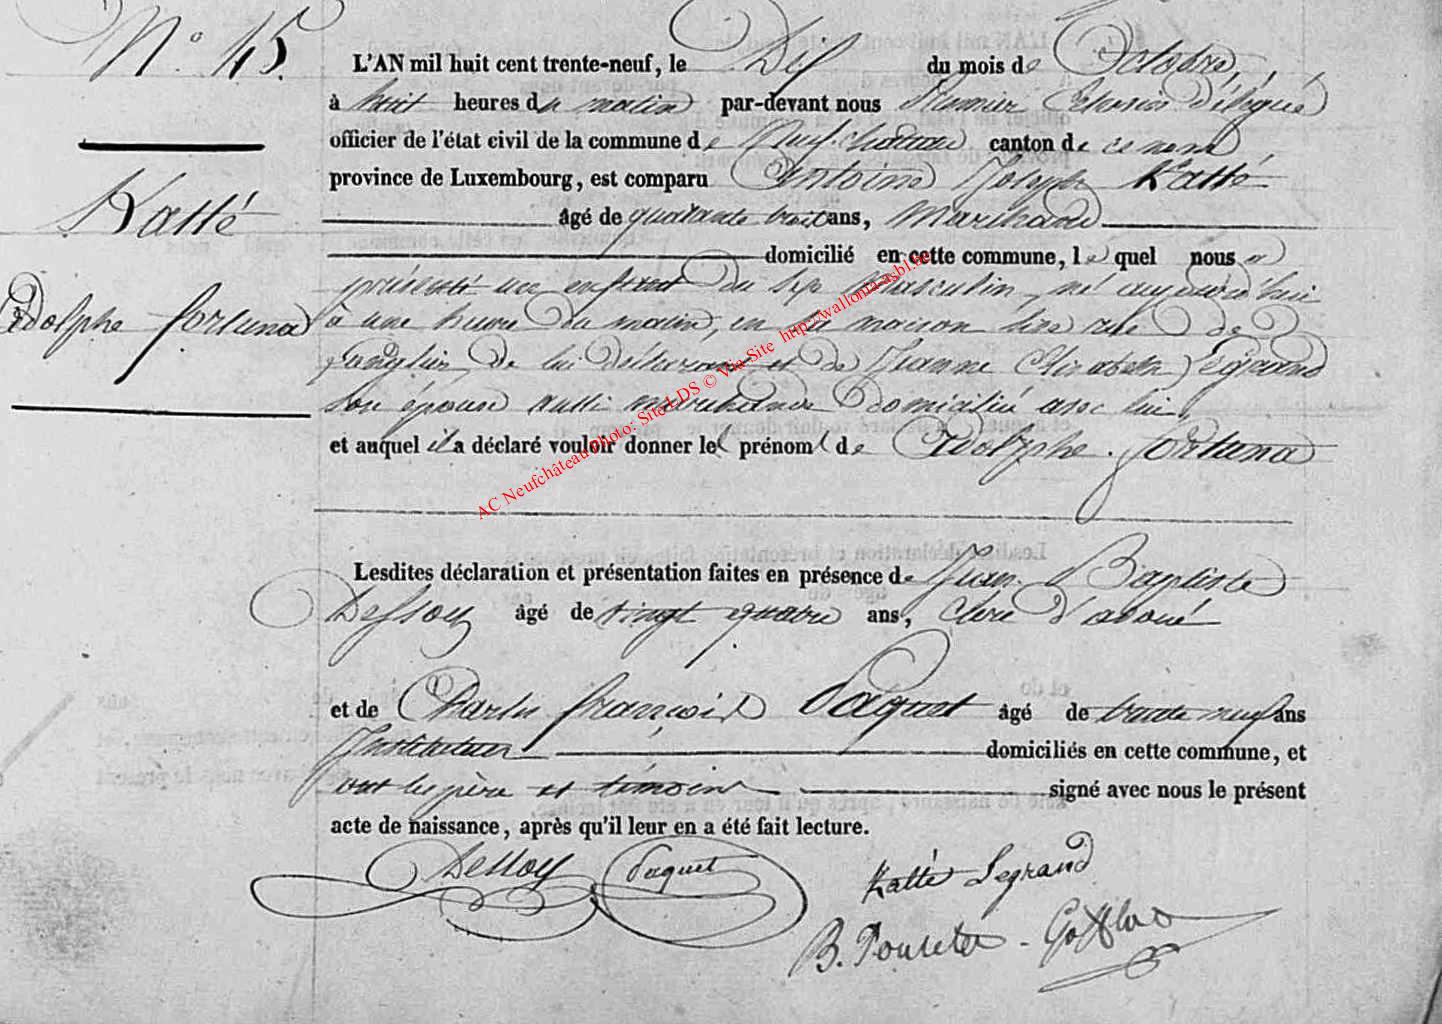 N° 45.
Katté
Adolphe fortuna
L'AN mil huit cent trente-neuf, le Dix du mois de Octobre,
à huit heures du matin par-devant nous Premier Echevin Délégué
officier de l'état civil de la commune de Neufchateau canton de ce nom,
province de Luxembourg, est comparu Antoine Joseph Katté
âgé de quarante trois ans, Marchand
domicilié en cette commune, lequel nous a
présenté un enfant du sexe Masculin, né aujourd'hui
à une heure du matin, en sa maison sise rue de
de lui déclarant et de Jeanne Elizabeth Legrand
son épouse aussi marchande Domiciliée avec lui,
et auquel il a déclaré vouloir donner le prénom de Adolphe fortuna
Lesdites déclaration et présentation faites en présence de Jean Baptiste
Dessoy âgé de vingt quatre ans, Clerc d'avoué
et de Charles françois Paquet âgé de trente neuf ans
Instituteur domiciliés en cette commune, et
ont les père et témoins signé avec nous le présent
acte de naissance, après qu'il leur en a été fait lecture.
Dessoy Paquet Katté Legrand
B. Poncelet - Gofflot
AC Neufchâteau Photo: Site LDS © Via Site http://wallonia-asbl.be